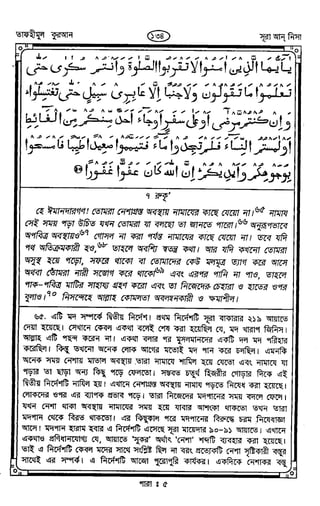 তাফহীমুল কুরআন
১৩৪
সূরা আন্ নিসা
يٰٓاَيُّهَا الَّذِيْنَ اٰمَنُوْا لَا تَقْرَبُوا الصَّلٰوةَ وَاَنْتُمْ سُكٰرٰى حَتّٰى
تَعْلَمُوْا مَا تَقُوْلُوْنَ وَلَا جُنُبًا اِلَّا عَابِرِيْ سَبِيْلٍ حَتّٰى تَغْتَسِلُوْا ؕ
وَاِنْ كُنْتُمْ مَّرْضٰٓى اَوْ عَلٰى سَفَرٍ اَوْ جَآءَ اَحَدٌ مِّنْكُمْ مِّنَ الْغَآئِطِ
اَوْ لٰمَسْتُمُ النِّسَآءَ فَلَمْ تَجِدُوْا مَآءً فَتَيَمَّمُوْا صَعِيْدًا طَيِّبًا فَامْسَحُوْا
بِوُجُوْهِكُمْ وَاَيْدِيْكُمْ ؕ اِنَّ اللّٰهَ كَانَ عَفُوًّا غَفُوْرًا
৭ রুকূ'
হে ঈমানদারগণ! তোমরা নেশাগ্রস্ত অবস্থায় নামাযের কাছে যেয়ো না।৬৫ নামায
সেই সময় পড়া উচিত যখন তোমরা যা বলছো তা জানতে পারো।৬৬ অনুরূপভাবে
অপবিত্র অবস্থায়ও৬৭ গোসল না করা পর্যন্ত নামাযের কাছে যেয়ো না। তবে যদি
পথ অতিক্রমকারী হও,৬৮ তাহলে অবশ্যি স্বতন্ত্র কথা। আর যদি কখনো তোমরা
অসুস্থ হয়ে পড়ো, সফরে থাকো বা তোমাদের কেউ মলমূত্র ত্যাগ করে আসে
অথবা তোমরা নারী সম্ভোগ করে থাকো৬৯ এবং এরপর পানি না পাও, তাহলে
পাক-পবিত্র মাটির সাহায্য গ্রহণ করো এবং তা নিজেদের চেহারা ও হাতের ওপর
বুলাও।৭০ নিসন্দেহে আল্লাহ কোমলতা অবলম্বনকারী ও ক্ষমাশীল।
৬৫. এটি মদ সম্পর্কে দ্বিতীয় নির্দেশ। প্রথম নির্দেশটি সূরা বাকারার ২১৯ আয়াতে
দেয়া হয়েছে। সেখানে কেবল একথা বলেই শেষ করা হয়েছিল যে, মদ খারাপ জিনিস।
আল্লাহ এটি পছন্দ করেন না। একথা বলার পর মুসলমানদের একটি দল মদ পরিহার
করেছিল। কিন্তু তখনো অনেক লোক আগের মতোই মদ পান করে চলছিল। এমনকি
অনেক সময় নেশায় অবস্থায় তারা নামাযে শামিল হয়ে যেতো এবং নামাযে যা
পড়ার তা ছাড়া অন্য কিছু পড়ে ফেলতো। সম্ভবত চতুর্থ হিজরীর গোড়ার দিকে এই
দ্বিতীয় নির্দেশটি নাযিল হয়। এখানে নেশাগ্রস্ত অবস্থায় নামায পড়তে নিষেধ করা হয়েছে।
লোকদের ওপর এর ব্যাপক প্রভাব পড়ে। তারা নিজেদের মদপানের সময় বদলে ফেলে।
যখন নেশা থাকা অবস্থায় নামাযের সময় হয়ে যাবার আশংকা থাকতো তখন তারা
মদপান থেকে বিরত থাকতো। এর কিছুকাল পরে মদপানের বিরুদ্ধে চরম নিষেধাজ্ঞা
আসে। মদপান হারাম হবার এ নির্দেশটি এসেছে সূরা মায়েদার ৯০-৯১ আয়াতে। এখানে
একথাও প্রণিধানযোগ্য যে, আয়াতে 'সুকর' অর্থাৎ 'নেশা' শব্দটি ব্যবহার করা হয়েছে।
তাই এ নির্দেশটি কেবল মদের সাথে সংশ্লিষ্ট ছিল না বরং প্রত্যেকটি নেশা সৃষ্টিকারী বস্তুর
সাথেই এর সম্পর্ক। এ নির্দেশটি আজো পুরোপুরি কার্যকর। একদিকে নেশাকর বস্তু
পারা : ৫